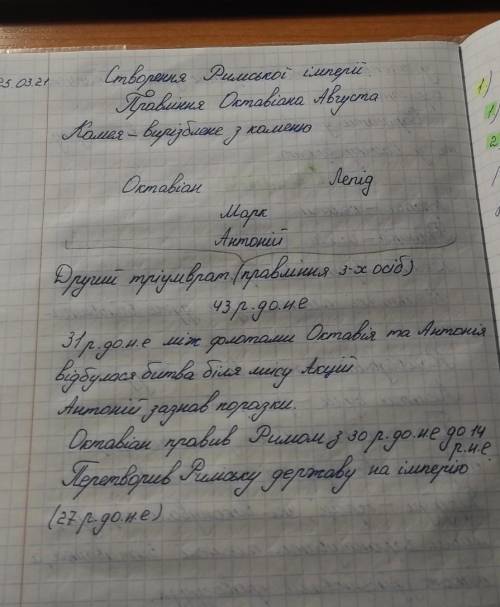 25.03.21 Створення Римської імперії
Правління Октавіана Августа
Камея – вирізблене з каменю
Октавіан Лепід
Марк
Антоній
Другий тріумврат (правління 3-х осіб)
43 р. до.н.е
31 р. до.н.е між флотами Октавія та Антонія
відбулася битва біля мису Акцій
Антоній зазнав поразки.
Октавіан правив Римом з 30 р. до.н.е до 14
р.н.е
Перетворив Римську державу на імперію
(27 р. до.н.е)
1)
1)
2